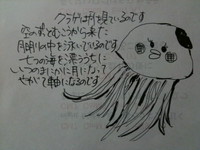 クラゲは
空のずっとむこうから来た
月明りの中を泳いでいるのです
七つの海を漂ううちに
いつのまにか月になって
やがて になるのです